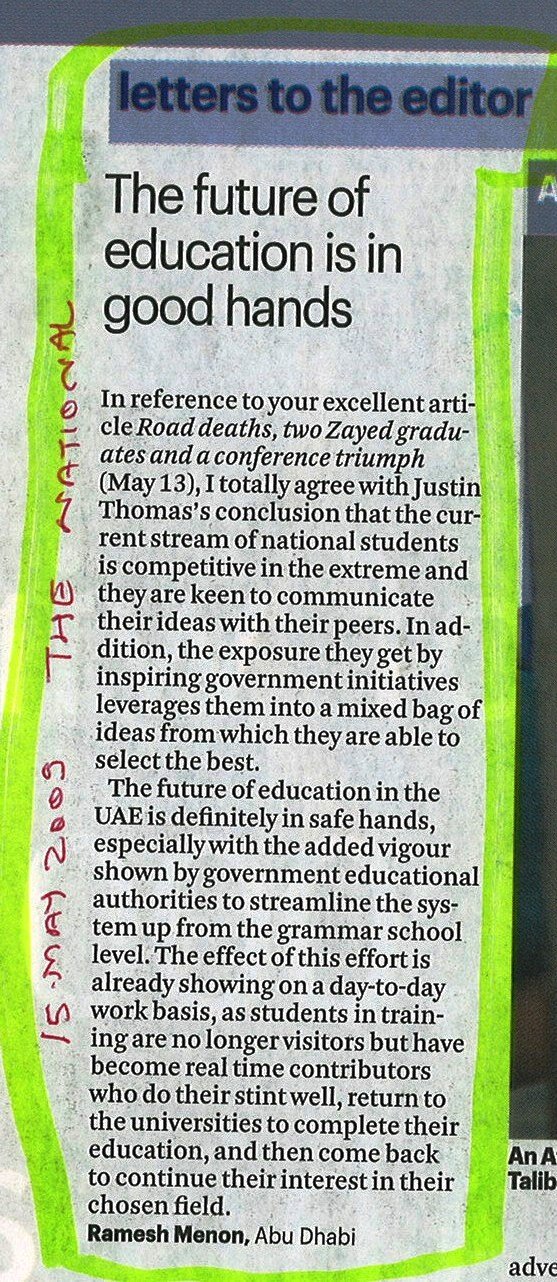 letters to the editor
The future of
education is in
good hands
In reference to your excellent arti-
cle Road deaths, two Zayed gradu-
ates and a conference triumph
(May 13), I totally agree with Justin
Thomas's conclusion that the cur-
rent stream of national students
is competitive in the extreme and
they are keen to communicate
their ideas with their peers. In ad-
dition, the exposure they get by
inspiring government initiatives
leverages them into a mixed bag of
ideas from which they are able to
select the best.
The future of education in the
UAE is definitely in safe hands,
especially with the added vigour
shown by government educational
authorities to streamline the sys-
tem up from the grammar school
level. The effect of this effort is
already showing on a day-to-day
work basis, as students in train-
ing are no longer visitors but have
become real time contributors
who do their stint well, return to
the universities to complete their
education, and then come back
to continue their interest in their
chosen field.
Ramesh Menon, Abu Dhabi
15 MAY 2009 THE NATIONAL
A
An A
Talib
adve